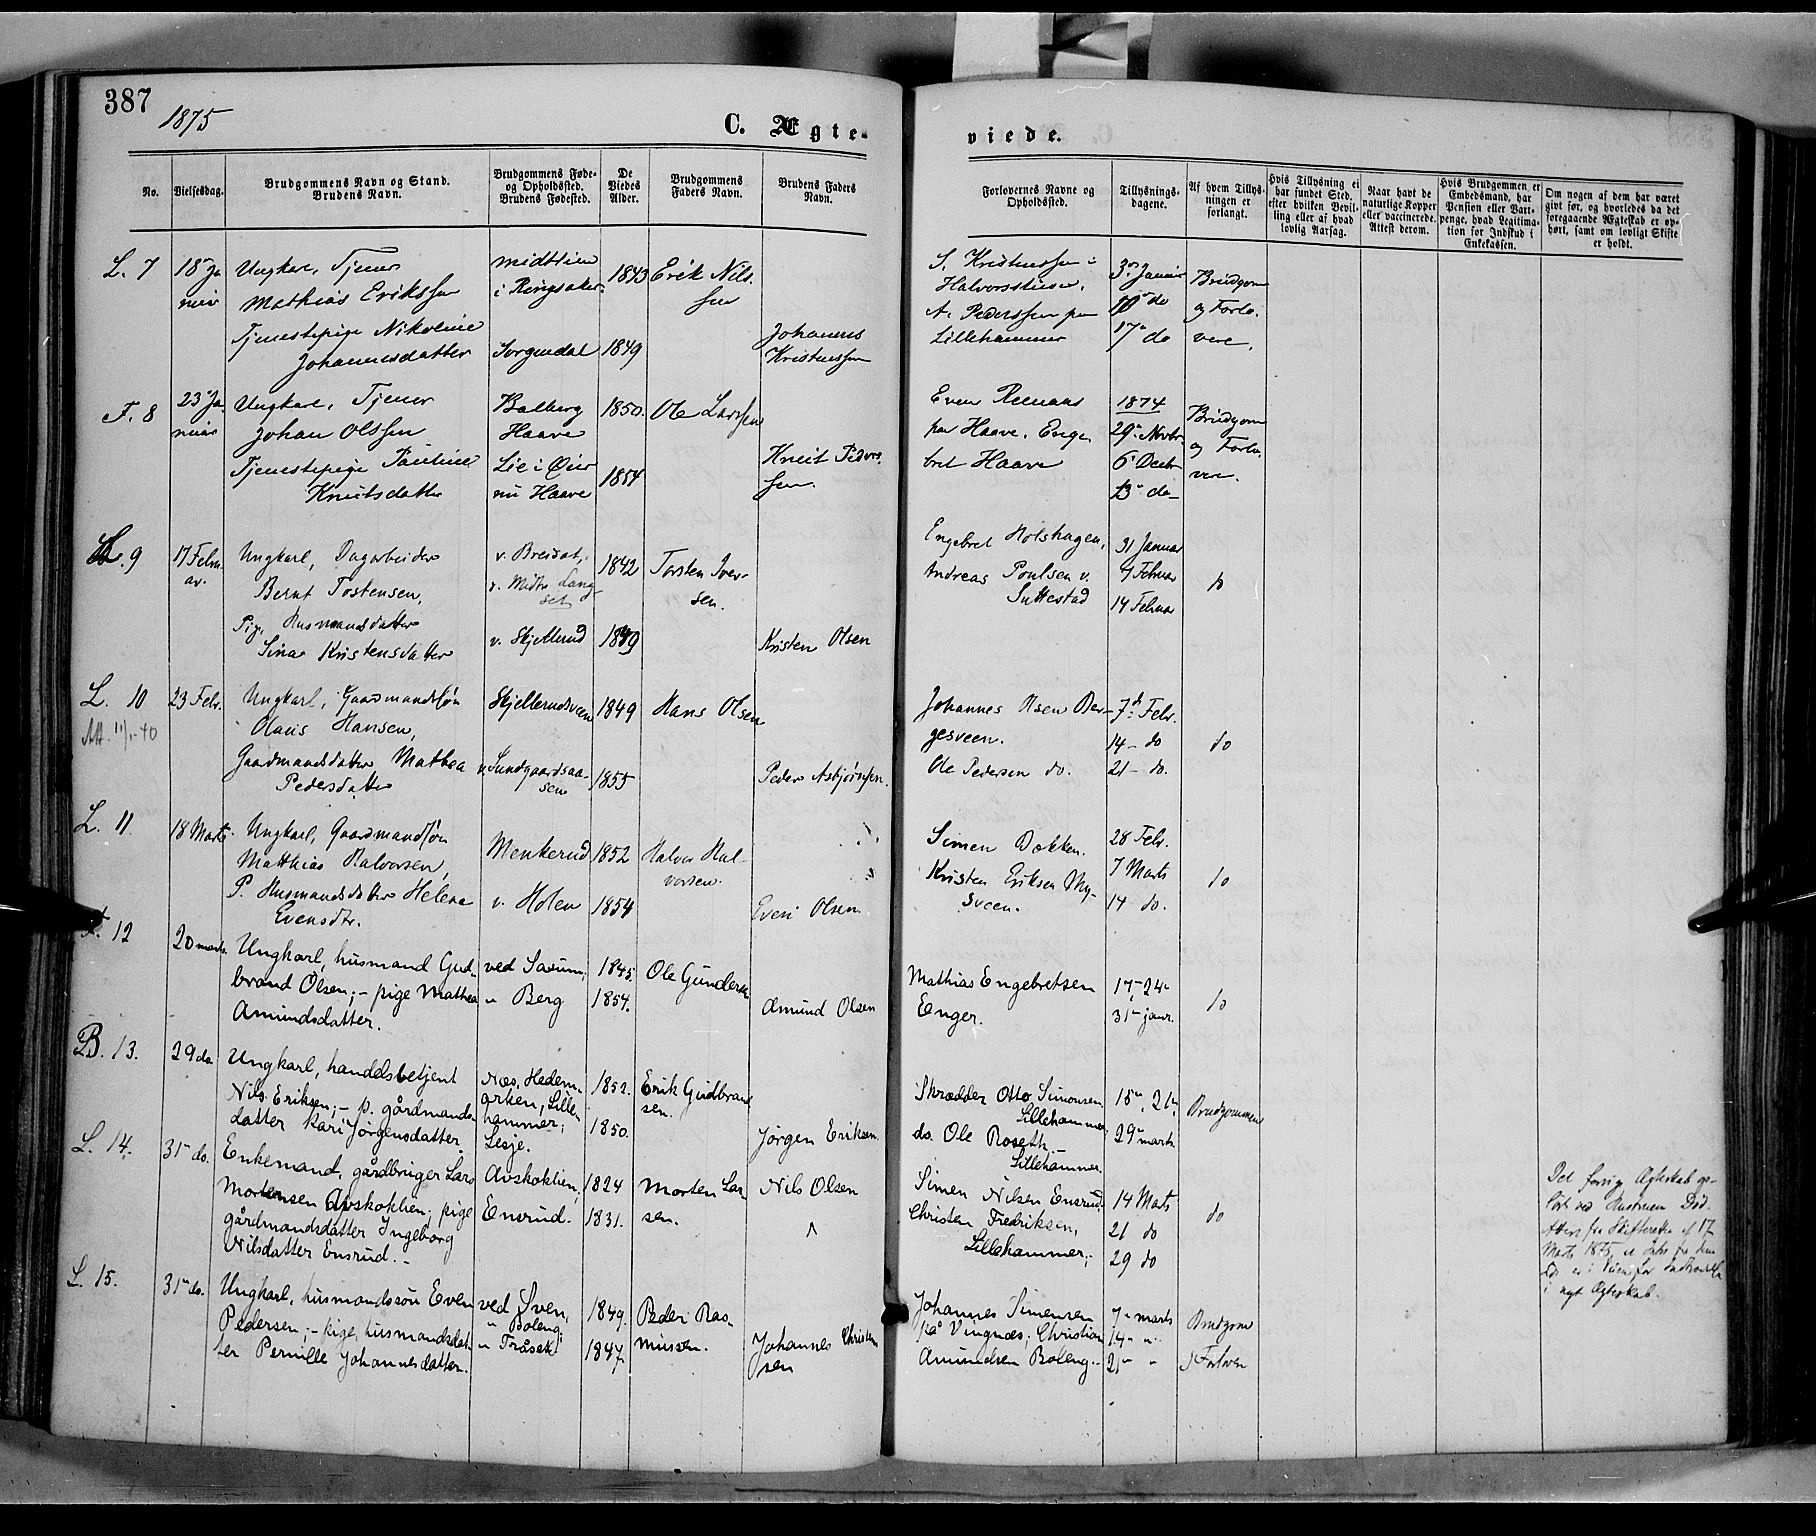 387
1875
C. Ægte-
viede.
No.
Vielsesdag.
Brudgommens Navn og Stand.
Brudens Navn.
Brudgommens Føde-
og Opholdsted.
Brudens Fødested.
De
Viedes
Alder.
Brudgommens
Faders Navn.
Brudens Faders
Navn.
Forlovernes Navne og
Opholdsted.
Tillysnings-
dagene.
Af hvem Tillys-
ningen er
forlangt.
Hvis Tillysning ei
har fundet Sted,
efter hvilken Bevil-
ling eller af hvad
lovlig Aarsag.
Naar havt de
naturlige Kopper
eller vaccinerede.
Attest derom.
Hvis Brudgommen er
Embedsmand, har
Pension eller Vart-
penge, hvad Legitima-
tion for Indskud i
Enkekassen.
Om nogen af dem har været
givt før, og hvorledes da det
foregaaende Ægteskab er op-
hørt, samt om lovligt Skifte
er holdt.
L. 7
18 Ja
nuar
Ungkarl, Tjener
Mathias Erikssen
Tjenestepige Nikoline
Johannesdatter
Midtlien
i Ringsaker
Sorgendal
1843
1849
Erik Nils
sen
Johannes
Kristenssen
S. Kristenssen i
Halvorsstuen.
A. Pederssen paa
Lillehammer
3 Januar
10 do
17 do
Brudgom
og Forlo
vere.
F. 8
23 Ja
nuar
Ungkarl, Tjener
Johan Olssen
Tjenestepige Pauline
Knutsdatter
Balberg
Haave
Lie i Øier
nu Haave
1850.
1854
Ole Larssen
Knut Peders
sen.
Even Reenaas
paa Haave. Enge
bret Haave
1874
29 Novbr
6 Decbr
13 do
Brudgom
og Forlo
vere.
L. 9
17 Febru
ar.
Ungkarl, Dagarbeider
Bernt Tostensen,
Pig. Husmandsdatter
Sina Kristensdatter
v. Breisat,
v. Midtr Lang
set
v. Skjellerud
1842
1849
Torsten Iver-
sen.
Kristen Olsen
Engebret Holshagen,
Andreas Poulsen v.
Suttestad
31 Januar
7 Februar
14 Februar
do
L. 10
23 Febr.
Ungkarl, Gaardmandssøn
Olaus Hansen,
Gaardmandsdatter Mathea
Pedersdatter
Skjellerudsveen
v. Sundgaardsaa-
sen
1849
1855
Hans Olsen
Peder Asbjørnsen.
Johannes Olsen Ber-
gesveen.
Ole Pedersen do.
7 Febr.
14 - do
21 - do.
do
L. 11.
18 Marts.
Ungkarl, Gaardmandssøn
Matthias Halvorsen,
P. Husmandsdatter Helene
Evensdtr.
Menkerud
v. Holen
1852
1854
Halvor Hal-
vorsen.
Even Olsen.
Simen Dokken.
Kristen Eriksen My-
sveen.
28 Febr.
7 Marts
14 do.
do
F. 12
20 marts.
Ungkarl, husmand Gud-
brand Olsen; - pige Mathea
Amundsdatter.
ved Saxum,
" Berg
1845.
1854.
Ole Gundersen
Amund Olsen
Mathias Engebretsen
Enger.
17 - 24
31 janr.
do
B. 13.
29 do
Ungkarl, handelsbetjent
Nils Eriksen; - p. gårdmands-
datter Kari Jørgensdatter
Næs, Hedem-
arken; Lille
hammer;
Lesje.
1852.
1850.
Erik Gudbrand
sen.
Jørgen Eriksen.
Skrædder Otto Simonsen
Lillehammer
do. Ole Roseth
Lillehammer.
15, 21
29 marts
Brudgommen
L. 14.
31 do.
Enkemand, gårdbruger Lars
Mortensen Avskoklien; pige
gårdmandsdatter Ingeborg
Nilsdatter Ensrud.
Avskoklien,
Ensrud.
1824
1831.
Morten Lar
sen.
Nils Olsen
Simen Nilsen Ensrud.
Christen Fredriksen,
Lillehammer;
14 Marts
21 do
29 do
do
Det forrige Ægteskab op-
løst ved Hustruens Død.
Attest fra Skifteretten af 17
Marts 1875,
i nyt Ægteskab.
L. 15.
31 do.
Ungkarl, husmandssøn Even
Pedersen; - pige, husmandsdat-
ter Pernille Johannesdatter.
ved Sven,
" Boleng;
" Tråset
1849.
1847.
Peder Ras-
mussen.
Johannes Christen
sen
Johannes Simensen
på Vingnæs; Christian
Amundsen Boleng.
7 marts
14 "
21 "
Brudgom
& Forlover